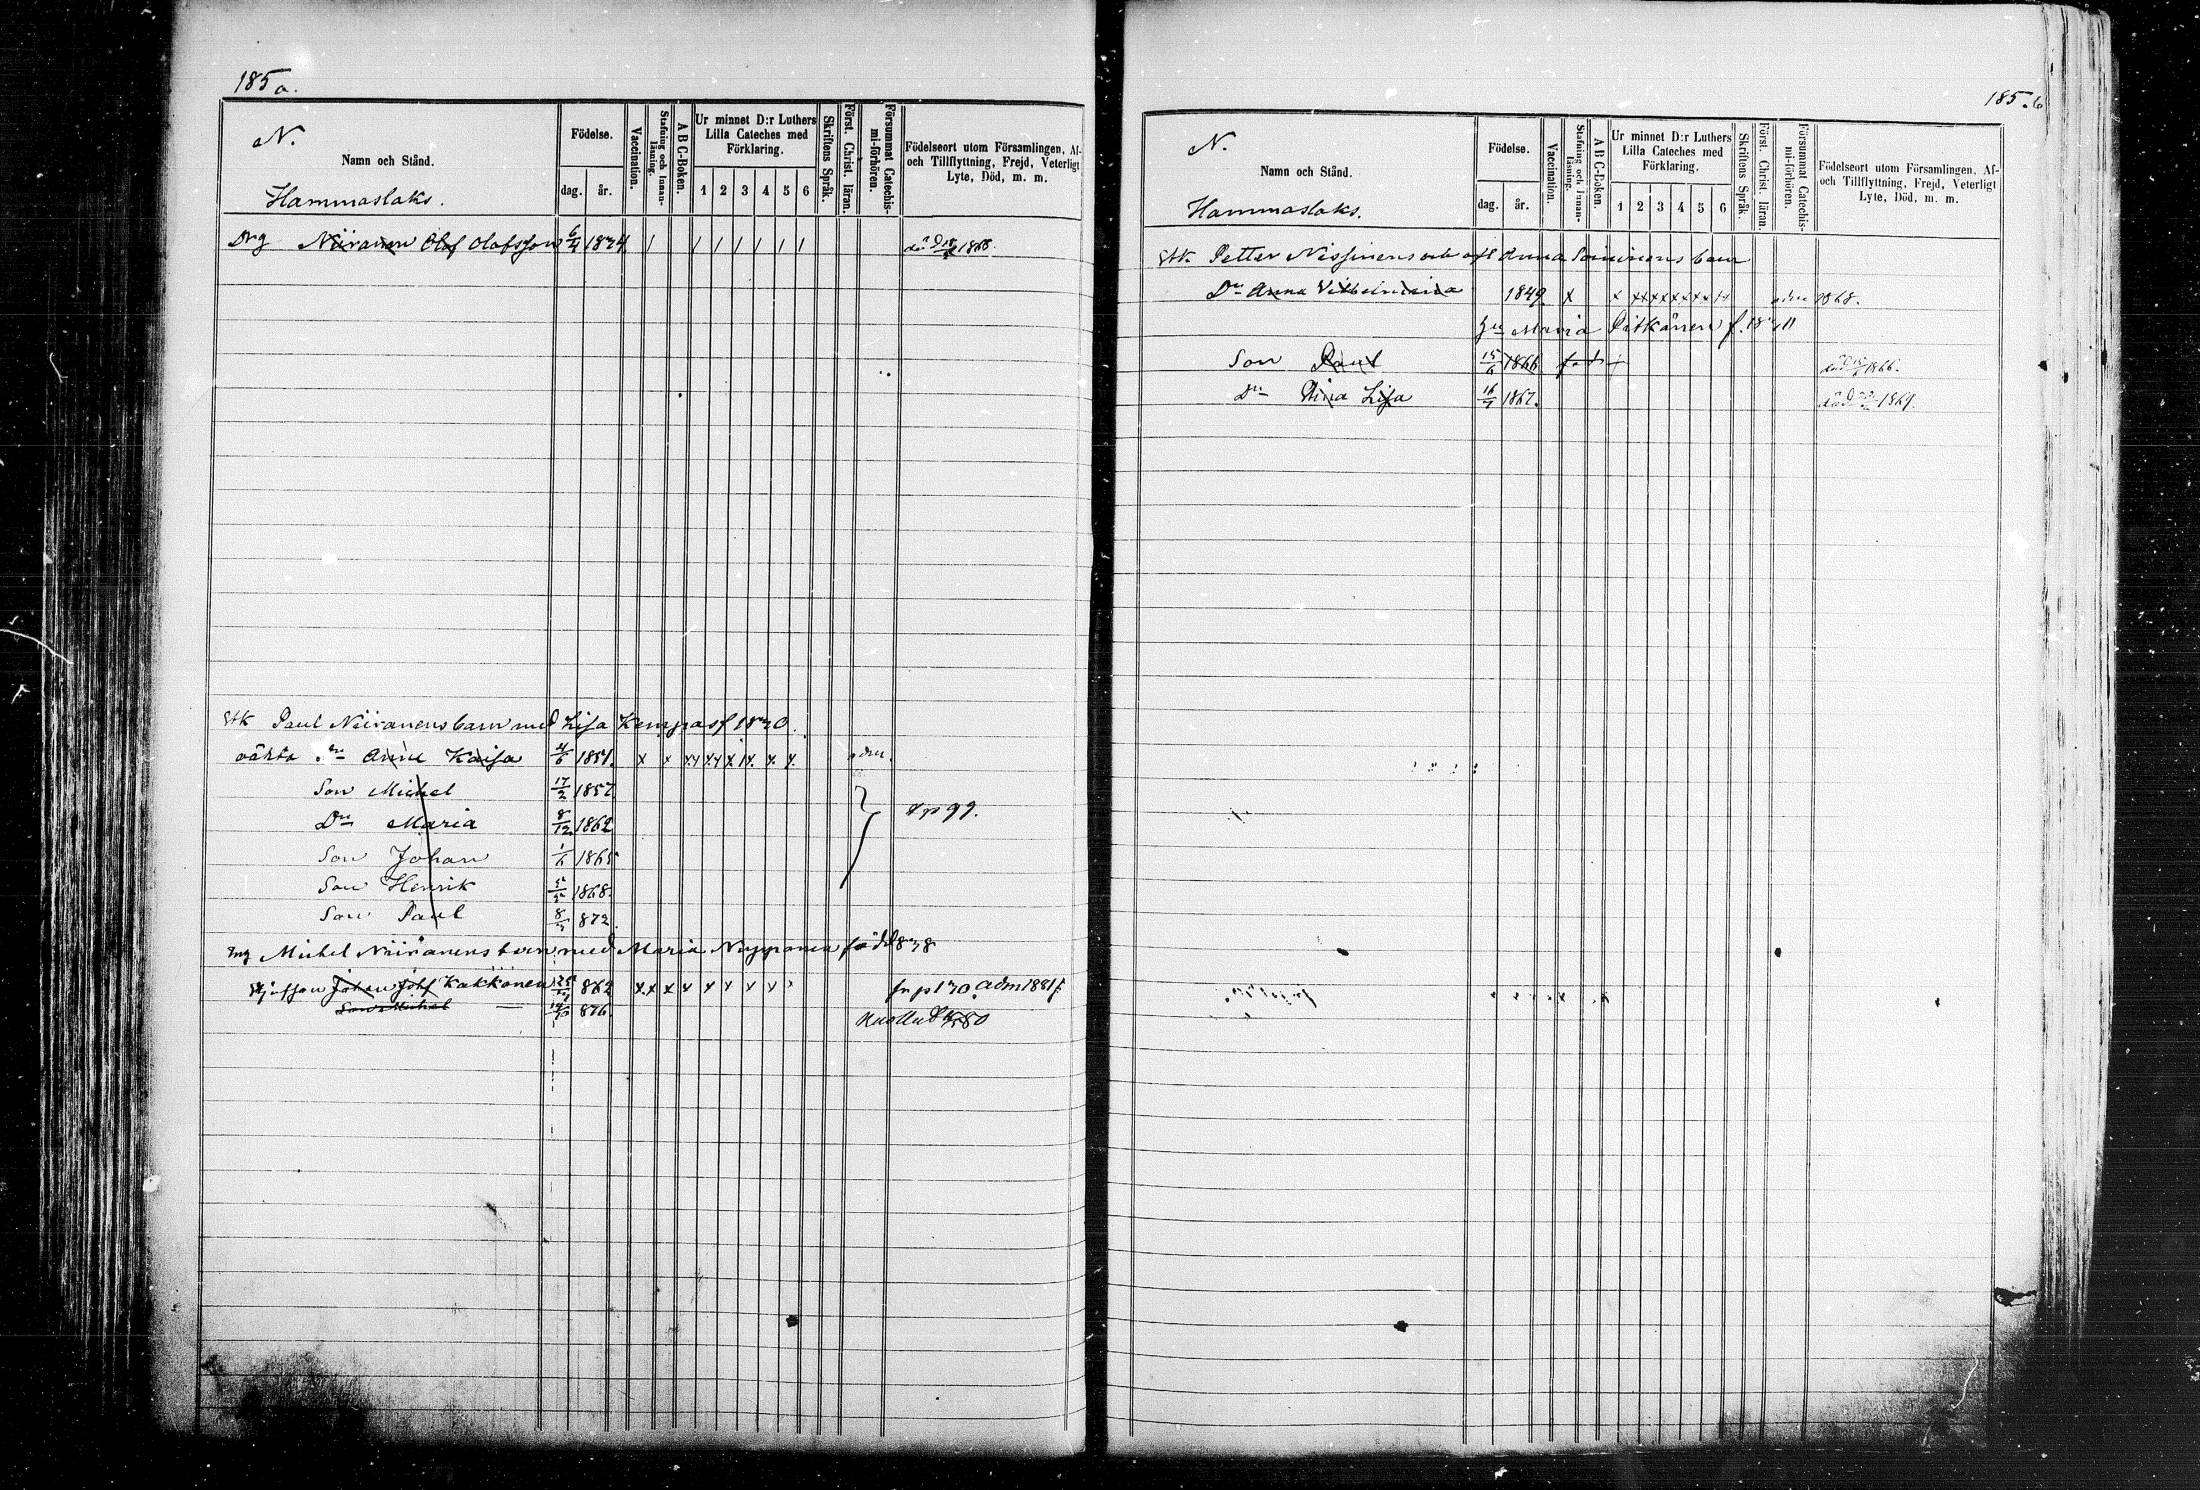 185 a.
N.
Namn och Stånd.
Hammaslaks.
Födelse.
dag. år.
Vaccination.
Stafning och Innan-läsning.
A B C-Boken.
Ur minnet D:r Luthers Lilla Cateches med Förklaring.
1 2 3 4 5 6
Skriftens Språk.
Först. Christ. läran.
Försummat Catechis-mi-förhören.
Födelseort utom Församlingen, Af- och Tillflyttning, Frejd, Veterligt Lyte, Död, m. m.
Drg Niiranen Olof Olofsson 1824 / / / / / / / död 1868.
Paul Niiranens barn med Lisa Kemppas f 1820.
Kaisa 4/6 1851. x x
Son Michel 17/2 1857.
Dr Maria 8/12 1862
Son Johan 1/6 1865
Son Henrik 1868.
Son Paul 872.
Michel Niiranens barn med Maria Nypponen född
Johan Kakkonen 862 x x x x x x x x fr p 170. adm 1881
Son Michel 876. kuollu 80
185. b
N.
Namn och Stånd.
Hammaslaks.
Födelse.
dag. år.
Vaccination.
Stafning och Innan-läsning.
A B C-Boken.
Ur minnet D:r Luthers Lilla Cateches med Förklaring.
1 2 3 4 5 6
Skriftens Språk.
Först. Christ. läran.
Försummat Catechis-mi-förhören.
Födelseort utom Församlingen, Af- och Tillflyttning, Frejd, Veterligt Lyte, Död, m. m.
Petter Nissinens och Anna Soininens barn
Dr Anna Vilhelmina 1849. x 1868.
Maria Pitkänen f.
Son Paul 15/6 1866 död 1866.
Dr Lisa 1867. död 1869.